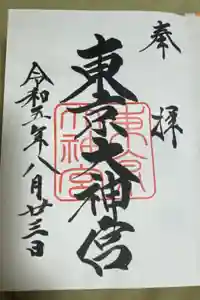 奉拝
東京大神宮
令和元年八月廿三日
東京大神宮